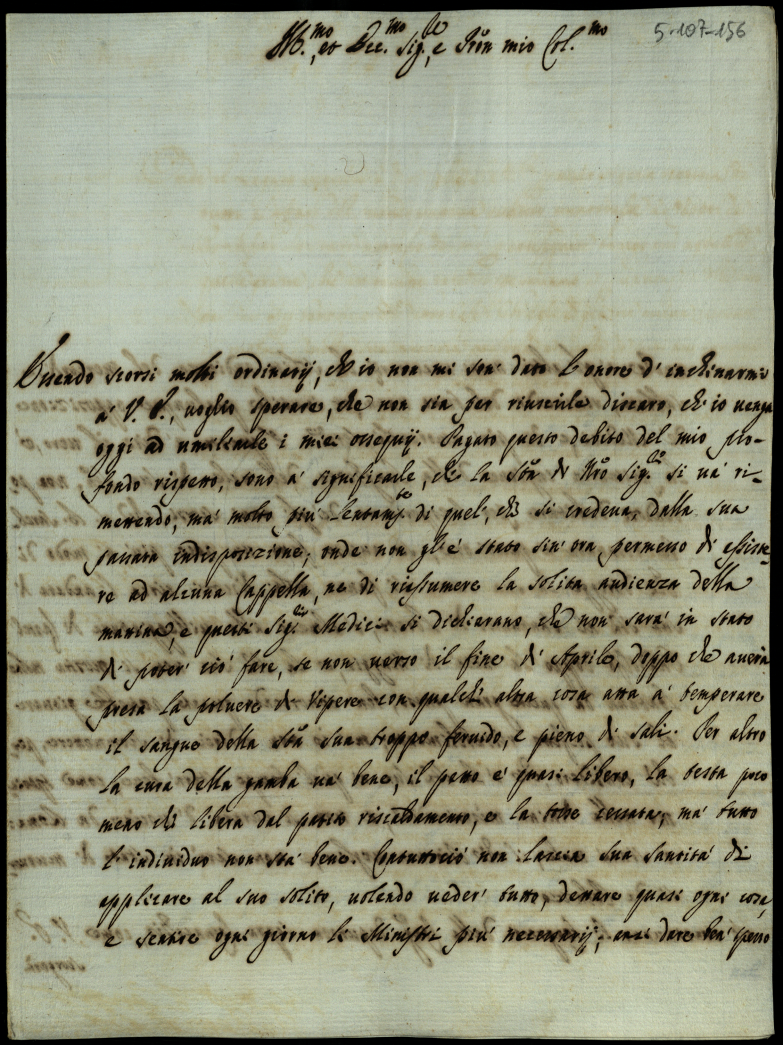 5-107-156
Ill.mo, et Ecc.mo Sig.re, e Pron mio Col.mo
Essendo scorsi molti ordinarij, ch'io non mi son' dato l'onore d'inchinarmi
à V. E., uoglio sperare, che non sia per riuscirle discaro, ch'io uenga
oggi ad umiliarle i miei ossequij. Pagato questo debito del mio pro-
fondo rispetto, sono a' significarle, che la Stà di Nro Sig.re si và ri-
mettendo, mà molto più lentamte di quel', che si credeua, dalla sua
passata indisposizione; onde non gl'è stato sin'ora permesso di assiste-
re ad alcuna Cappella, ne di riassumere la solita audienza della
mattina, e questi Sig.ri Medici si dichiarano, che non' sarà in stato
di poter' ciò fare, se non uerso il fine d'Aprile, doppo che auerà
presa la poluere di Vipere con qualch'altra cosa atta à temperare
il sangue della Stà sua troppo feruido, e pieno di sali. Per altro
la cura della gamba và bene, il petto è quasi libero, la testa poco
meno che libera dal patito riscaldamento, e la tosse cessata; mà tutto
l'individuo non stà bene. Contuttociò non lascia sua santità di
applicare al suo solito, uolendo ueder' tutto, dettare quasi ogni cosa,
e sentire ogni giorno li Ministri più necessarij; anzi dare ben' spesso